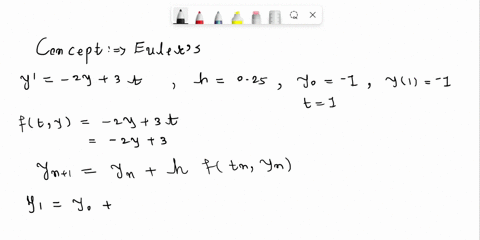 Concept :⇒ Euler's
y' = -2y + 3t , h = 0.25 , y₀ = -1 , y(1) = -1
t = 1
f(t,y) = -2y + 3t
= -2y + 3
yₙ₊₁ = yₙ + h f(tₙ, yₙ)
y₁ = y₀ +